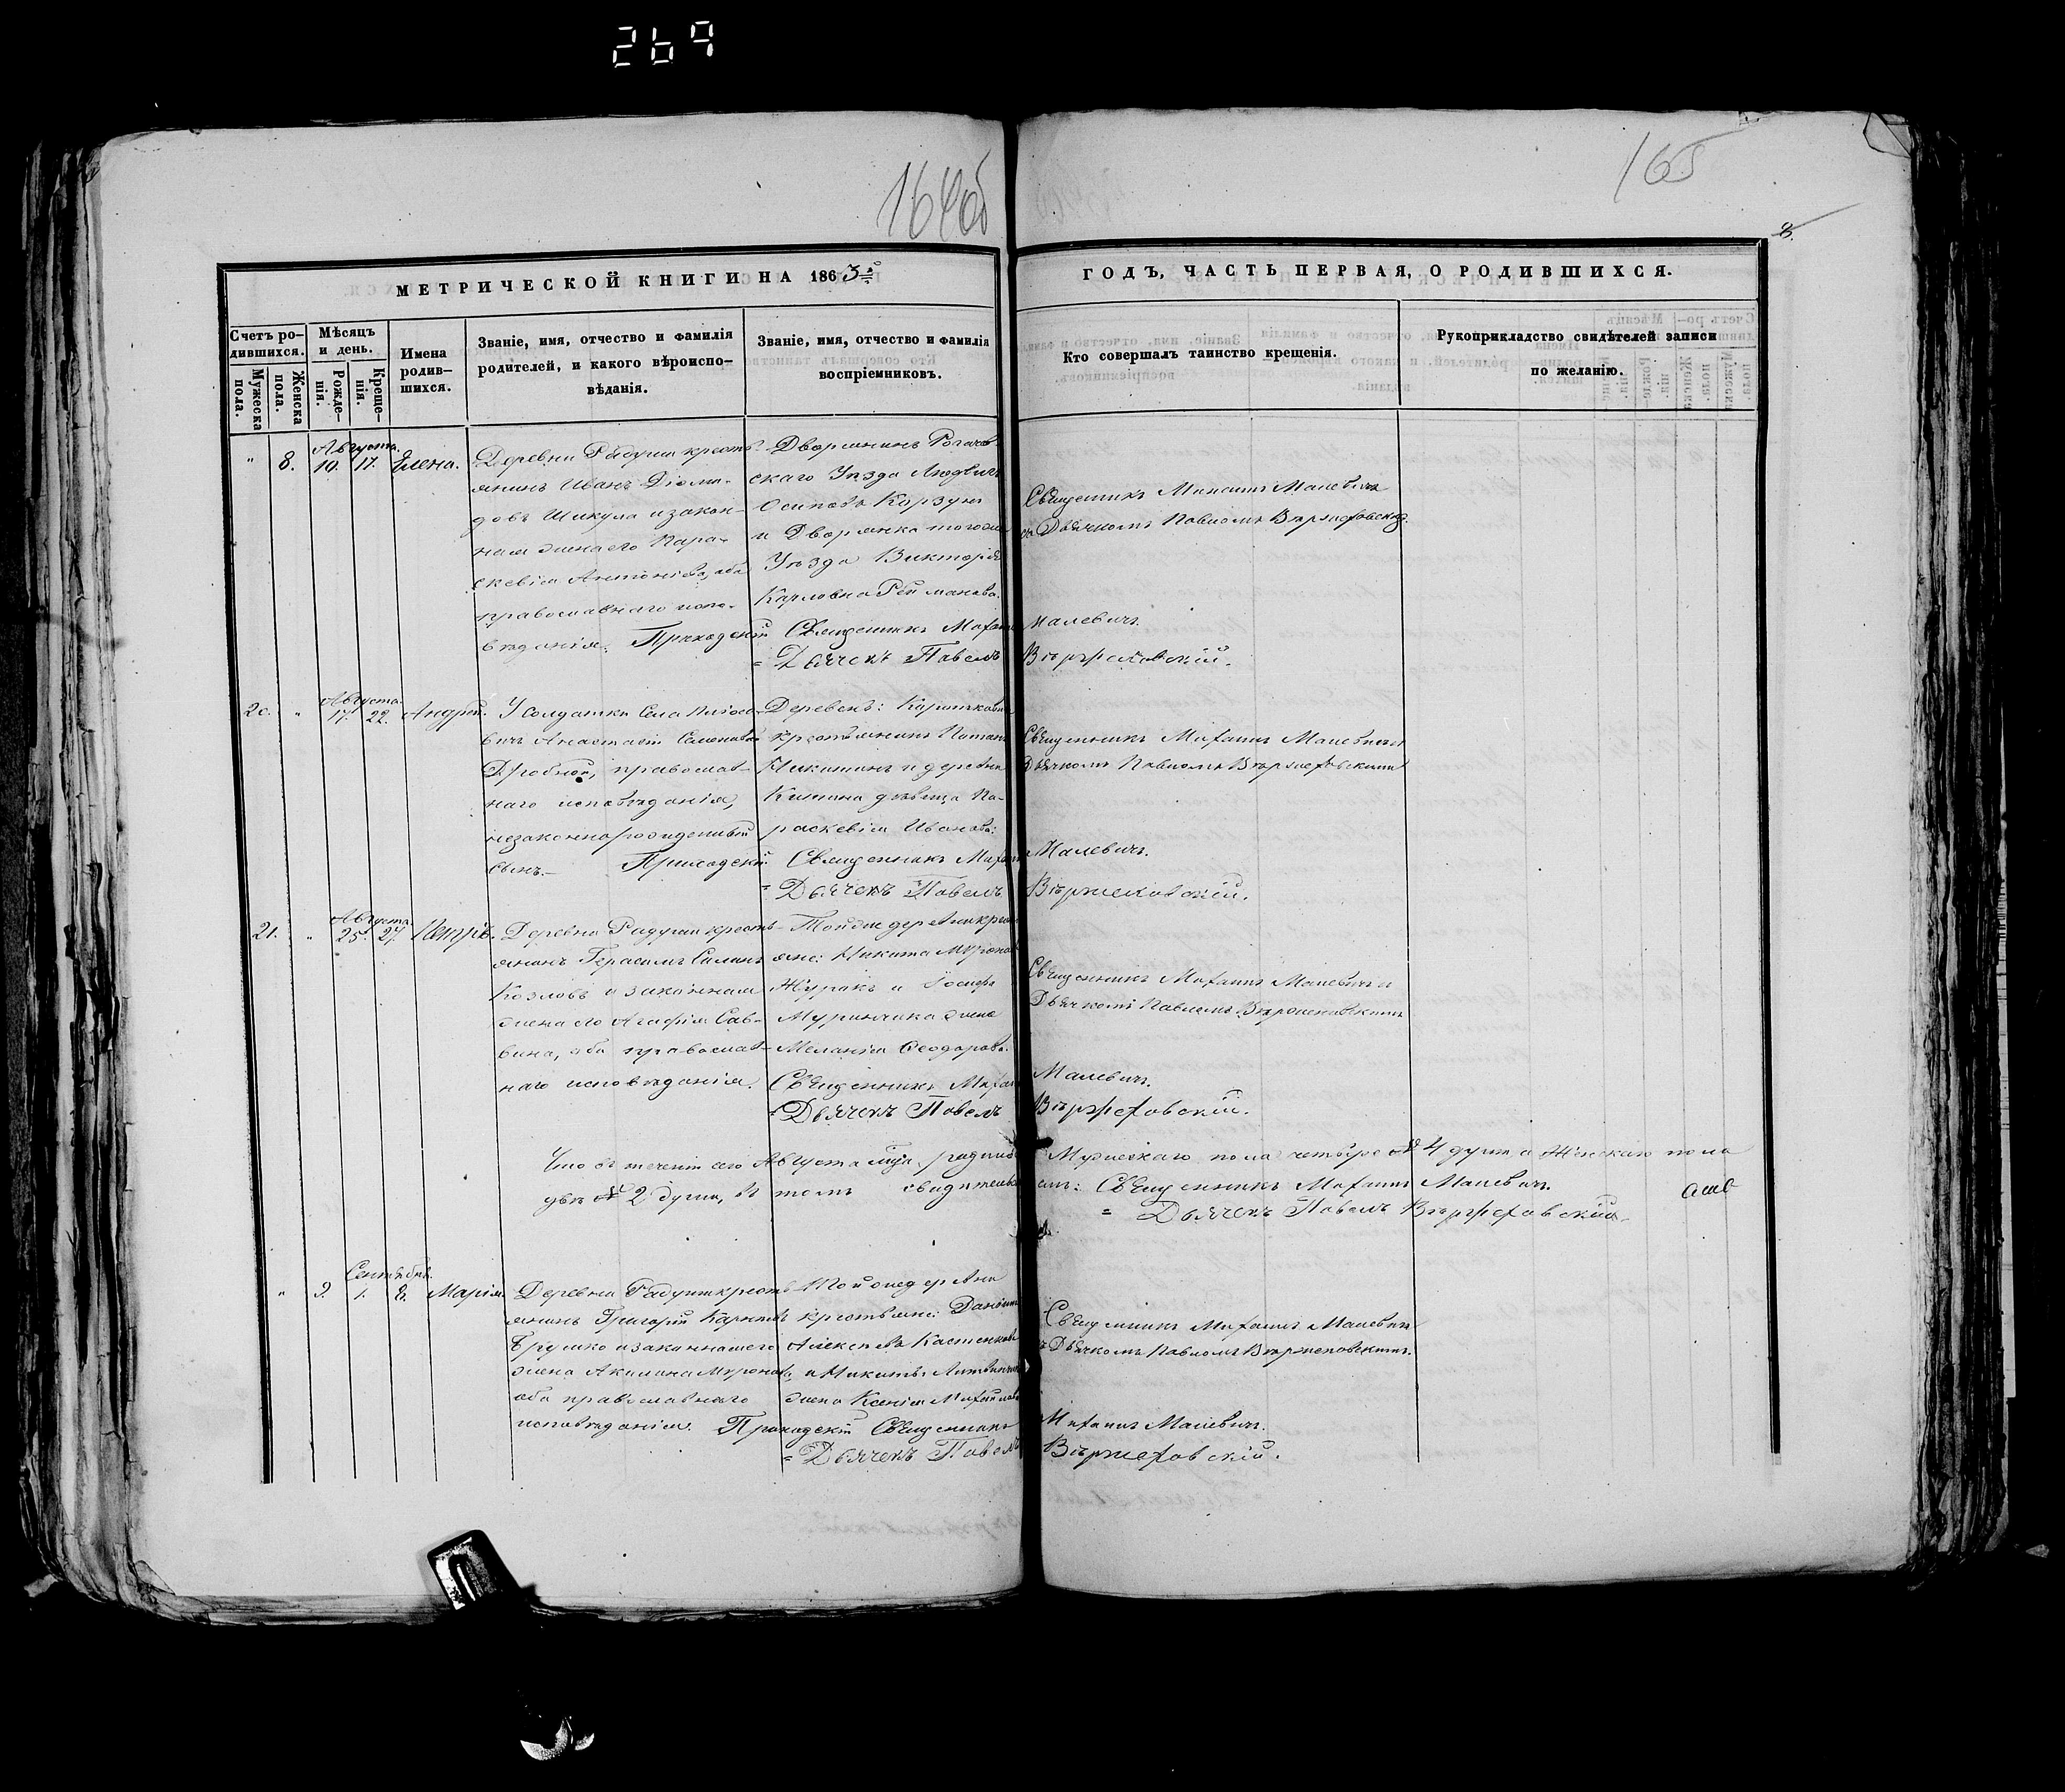 269
164об
165
8.
МЕТРИЧЕСКОЙ КНИГИ НА 1863й
ГОДЪ, ЧАСТЬ ПЕРВАЯ, О РОДИВШИХСЯ.
Счетъ ро-
дившихся.
Мужеска
пола.
Женска
пола.
Мѣсяцъ
и день.
Рожде-
нія.
Креще-
нія.
Имена
родив-
шихся.
Званіе, имя, отчество и фамилія
родителей, и какого вѣроиспо-
вѣданія.
Званіе, имя, отчество и фамилія
воспріемниковъ.
Кто совершалъ таинство крещенія.
Рукоприкладство свидѣтелей записи
по желанію.
Августа.
" 8. 10. 17. Елена.
Деревни Радуши кресть-
янинъ Иванъ
довъ Шикула и закон-
ная жена его Пара-
скевія Антоніева, оба
православнаго испо-
вѣданія.
Дворянинъ Рогачев-
скаго Уѣзда Людвигъ
Осиповъ Корзунъ
и Дворянка тогоже
Уѣзда Викторія
Карловна
Священникъ Михаилъ Малевичъ
съ Дьячкомъ Павломъ Вержеховскимъ.
Приходскій Священникъ Михаилъ Малевичъ.
= Дьячекъ Павелъ Вержеховскій.
Августа.
20. " 17. 22. Андрей.
У солдатки Села
Анастасіи Семеновой
Дробной, православ-
наго исповѣданія,
незаконнорожденный
сынъ.-
Деревень:
крестьянинъ
Никитинъ и деревни
дѣвица Па-
раскевія Иванова:
Священникъ Михаилъ Малевичъ съ
Дьячкомъ Павломъ Вержеховскимъ
Приходскій Священникъ Михаилъ Малевичъ.
= Дьячекъ Павелъ Вержеховскій.
Августа.
21. " 25. 27. Петръ.
Деревни Радуши кресть-
янинъ Герасимъ Силинъ
Козловъ и законная
жена его Агафія Сав-
вина, оба православ-
наго исповѣданія.
Тойже деревни кресть-
яне: Никита Миронов
Журакъ и Іосифа
жена
Меланія Ѳеодорова.
Священникъ Михаилъ Малевичъ съ
Дьячкомъ Павломъ Вержеховскимъ
Священникъ Михаилъ Малевичъ.
= Дьячекъ Павелъ Вержеховскій.
Что въ теченіи сего Августа мца, родилось Мужескаго пола четыре № 4 души а Женскаго пола
двѣ № 2 души, въ томъ свидѣтельствуемъ: Священникъ Михаилъ Малевичъ.
= Дьячекъ Павелъ Вержеховскій.
Сентября.
" 9. 1. 8. Марія.
Деревни Радуши кресть-
янинъ Григорій Карповъ
и законная его
жена Акилина Миронова,
оба православнаго
исповѣданія.
Тойже деревни
крестьяне: Даніилъ
Алексѣевъ
и Никиты
жена Ксенія Михайлова
Священникъ Михаилъ Малевичъ
съ Дьячкомъ Павломъ Вержеховскимъ.
Приходскій Священникъ Михаилъ Малевичъ.
= Дьячекъ Павелъ Вержеховскій.